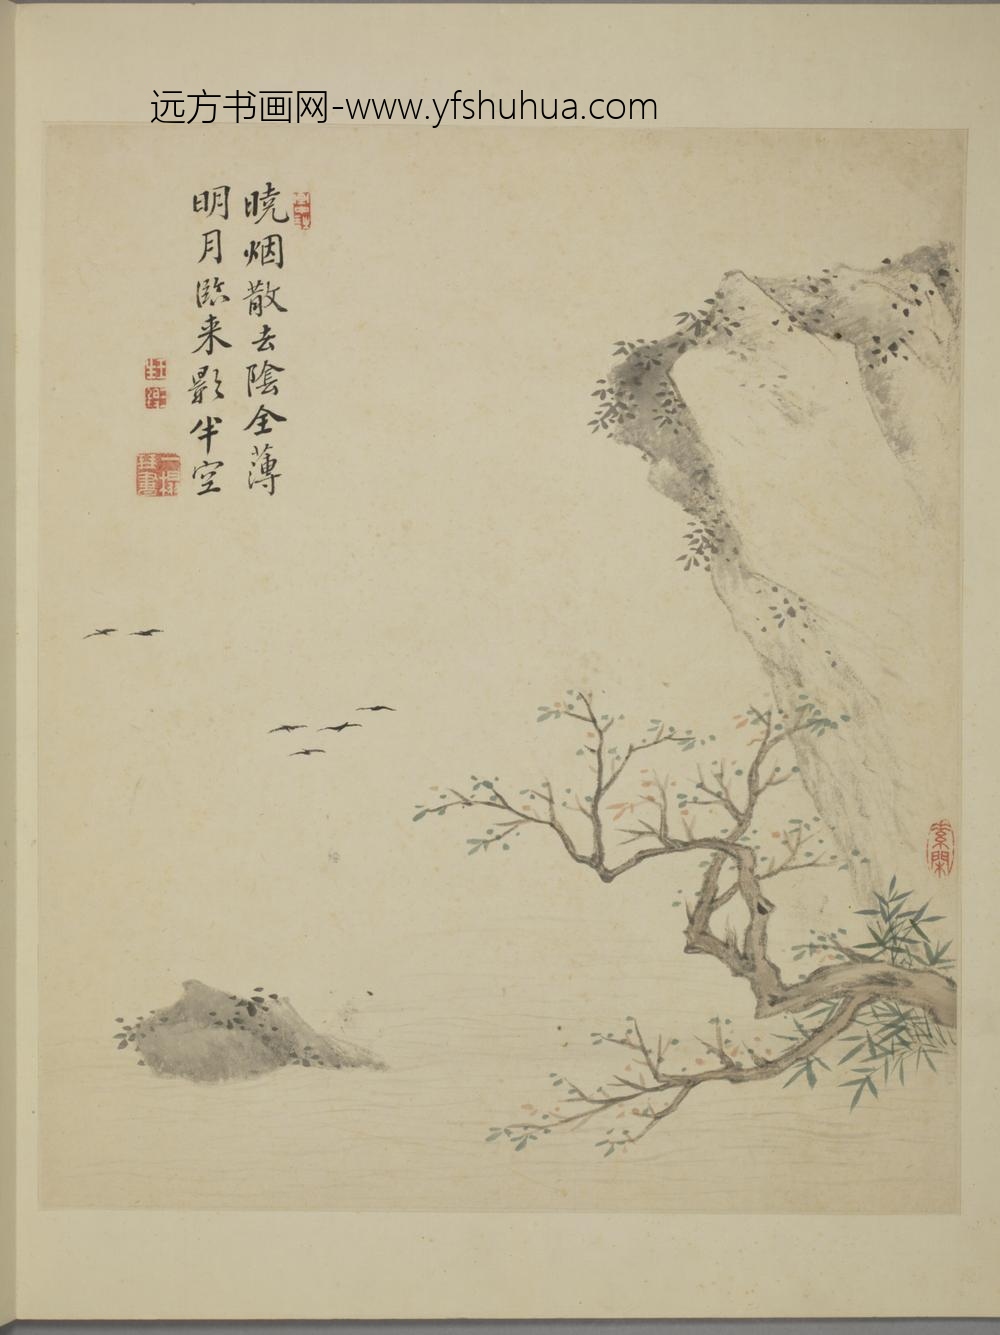 远方书画网-www.yfshuhua.com
曉烟散去陰全薄
明月臨来影半空
素閑